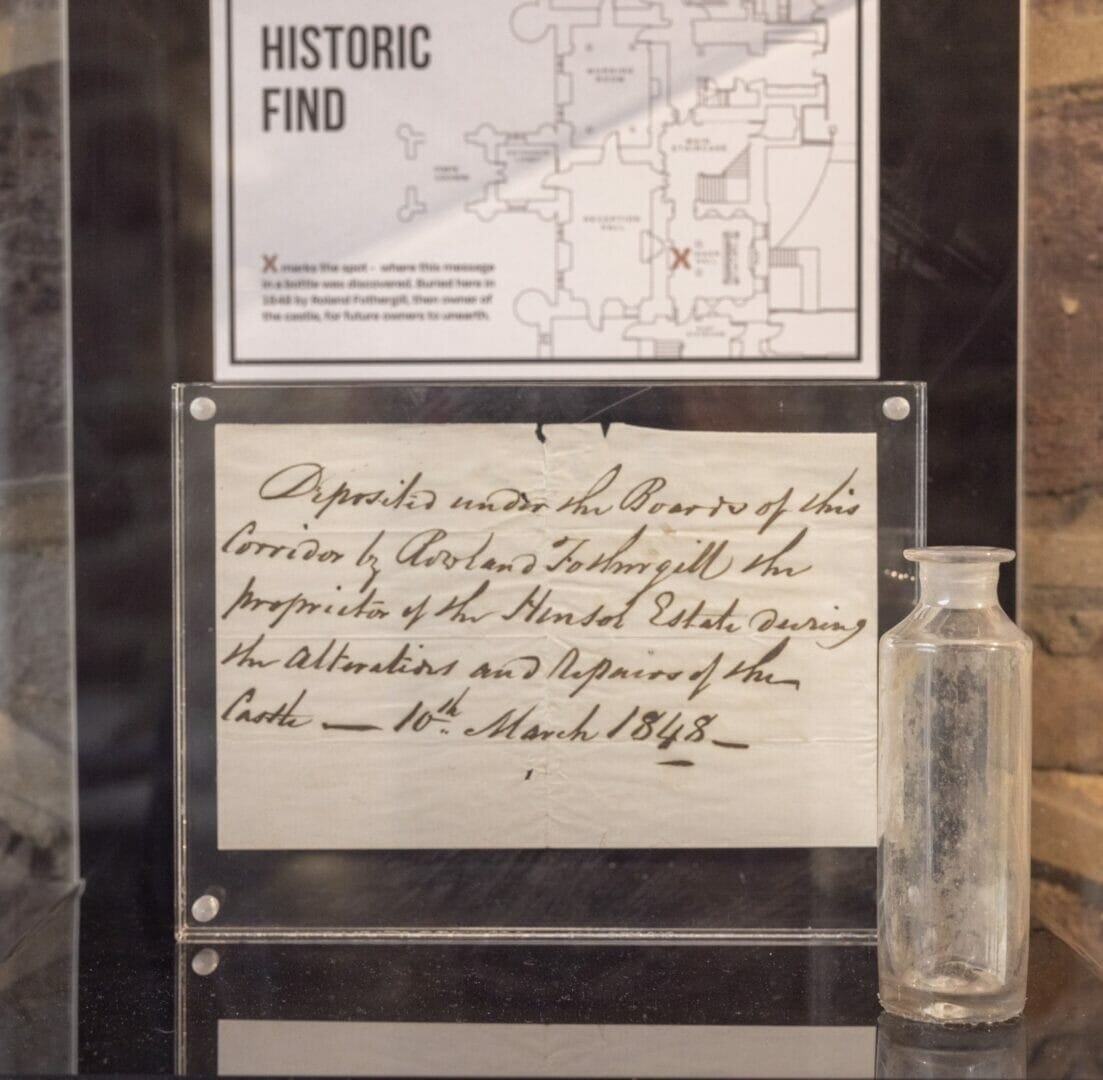 HISTORIC
FIND
MORNING
ROOM
MAIN
STAIRCASE
RECEPTION
HALL
X
X marks the spot – where this message
in a bottle was discovered. Buried here in
1848 by Roland Fothergill, then owner of
the castle, for future owners to unearth.
Deposited under the Boards of this
Corridor by Rowland Fothergill the
proprietor of the Hensol Estate during
the Alterations and Repairs of the
Castle — 10th March 1848 —